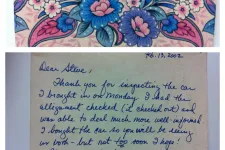 Feb. 13, 2002
Dear Steve,
Thank you for inspecting the car
I brought in on Monday. I had the
allignment checked (it checked out) and
was able to deal much more well-informed.
I bought the car so you will be seeing
us both - but not too soon I hope!